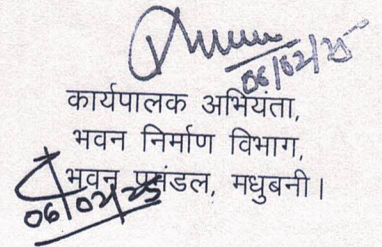 06/02/25
कार्यपालक अभियंता,
भवन निर्माण विभाग,
भवन प्रमंडल, मधुबनी।
06/02/25